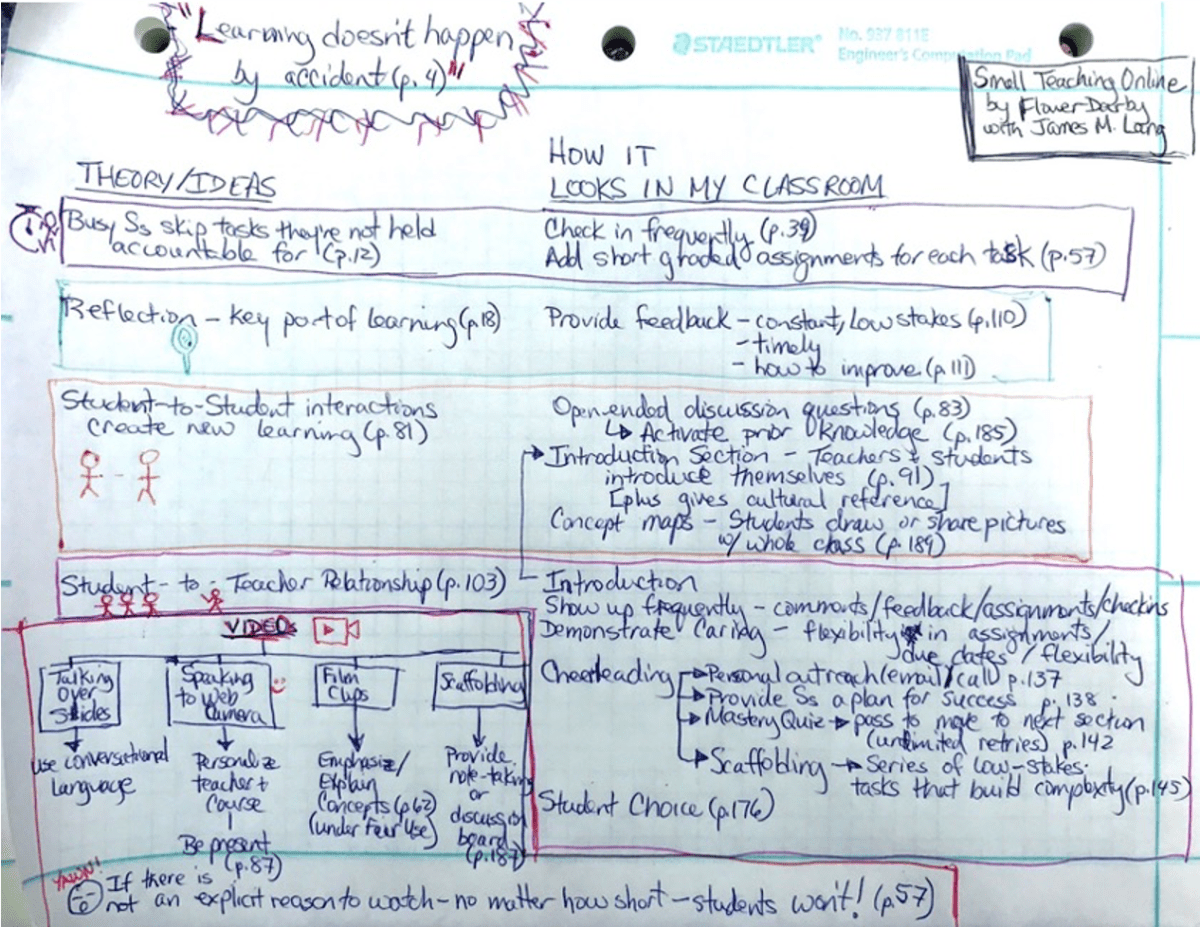 "Learning doesn't happen
by accident (p. 4)"
STAEDTLER®
No. 937 811E
Engineer's Computation Pad
Small Teaching Online
by Flower Darby
with James M. Lang
THEORY/IDEAS
HOW IT
LOOKS IN MY CLASSROOM
Busy Ss skip tasks they're not held
accountable for (p.12)
Check in frequently (p.39)
Add short graded assignments for each task (p.57)
Reflection – key part of learning (p.18)
Provide feedback – constant, low stakes (p.110)
- timely
- how to improve (p.111)
Student-to-Student interactions
create new learning (p.81)
Open-ended discussion questions (p.83)
↳ Activate prior knowledge (p.185)
Introduction Section – Teachers & students
introduce themselves (p.91)
[plus gives cultural reference]
Concept maps – Students draw or share pictures
w/ whole class (p.189)
Student-to-Teacher Relationship (p.103)
Introduction
Show up frequently – comments/feedback/assignments/checkins
Demonstrate Caring – flexibility in assignments/
due dates/flexibility
Cheerleading
Personal outreach (email/call) p.137
Provide Ss a plan for success p. 138
Mastery Quiz → pass to move to next section
(unlimited retries) p.142
Scaffolding → Series of low-stakes
tasks that build complexity (p.145)
Student Choice (p.176)
VIDEOS
Talking
Over
Slides
use conversational
language
Speaking
to Web
Camera
Personalize
teacher +
Course
Be present
(p.87)
Film
Clips
Emphasize/
Explain
Concepts (p.62)
(under Fair Use)
Scaffolding
Provide
note-taking
or
discussion
board
(p.187)
YAWN!
If there is
not an explicit reason to watch – no matter how short – students won't! (p.57)